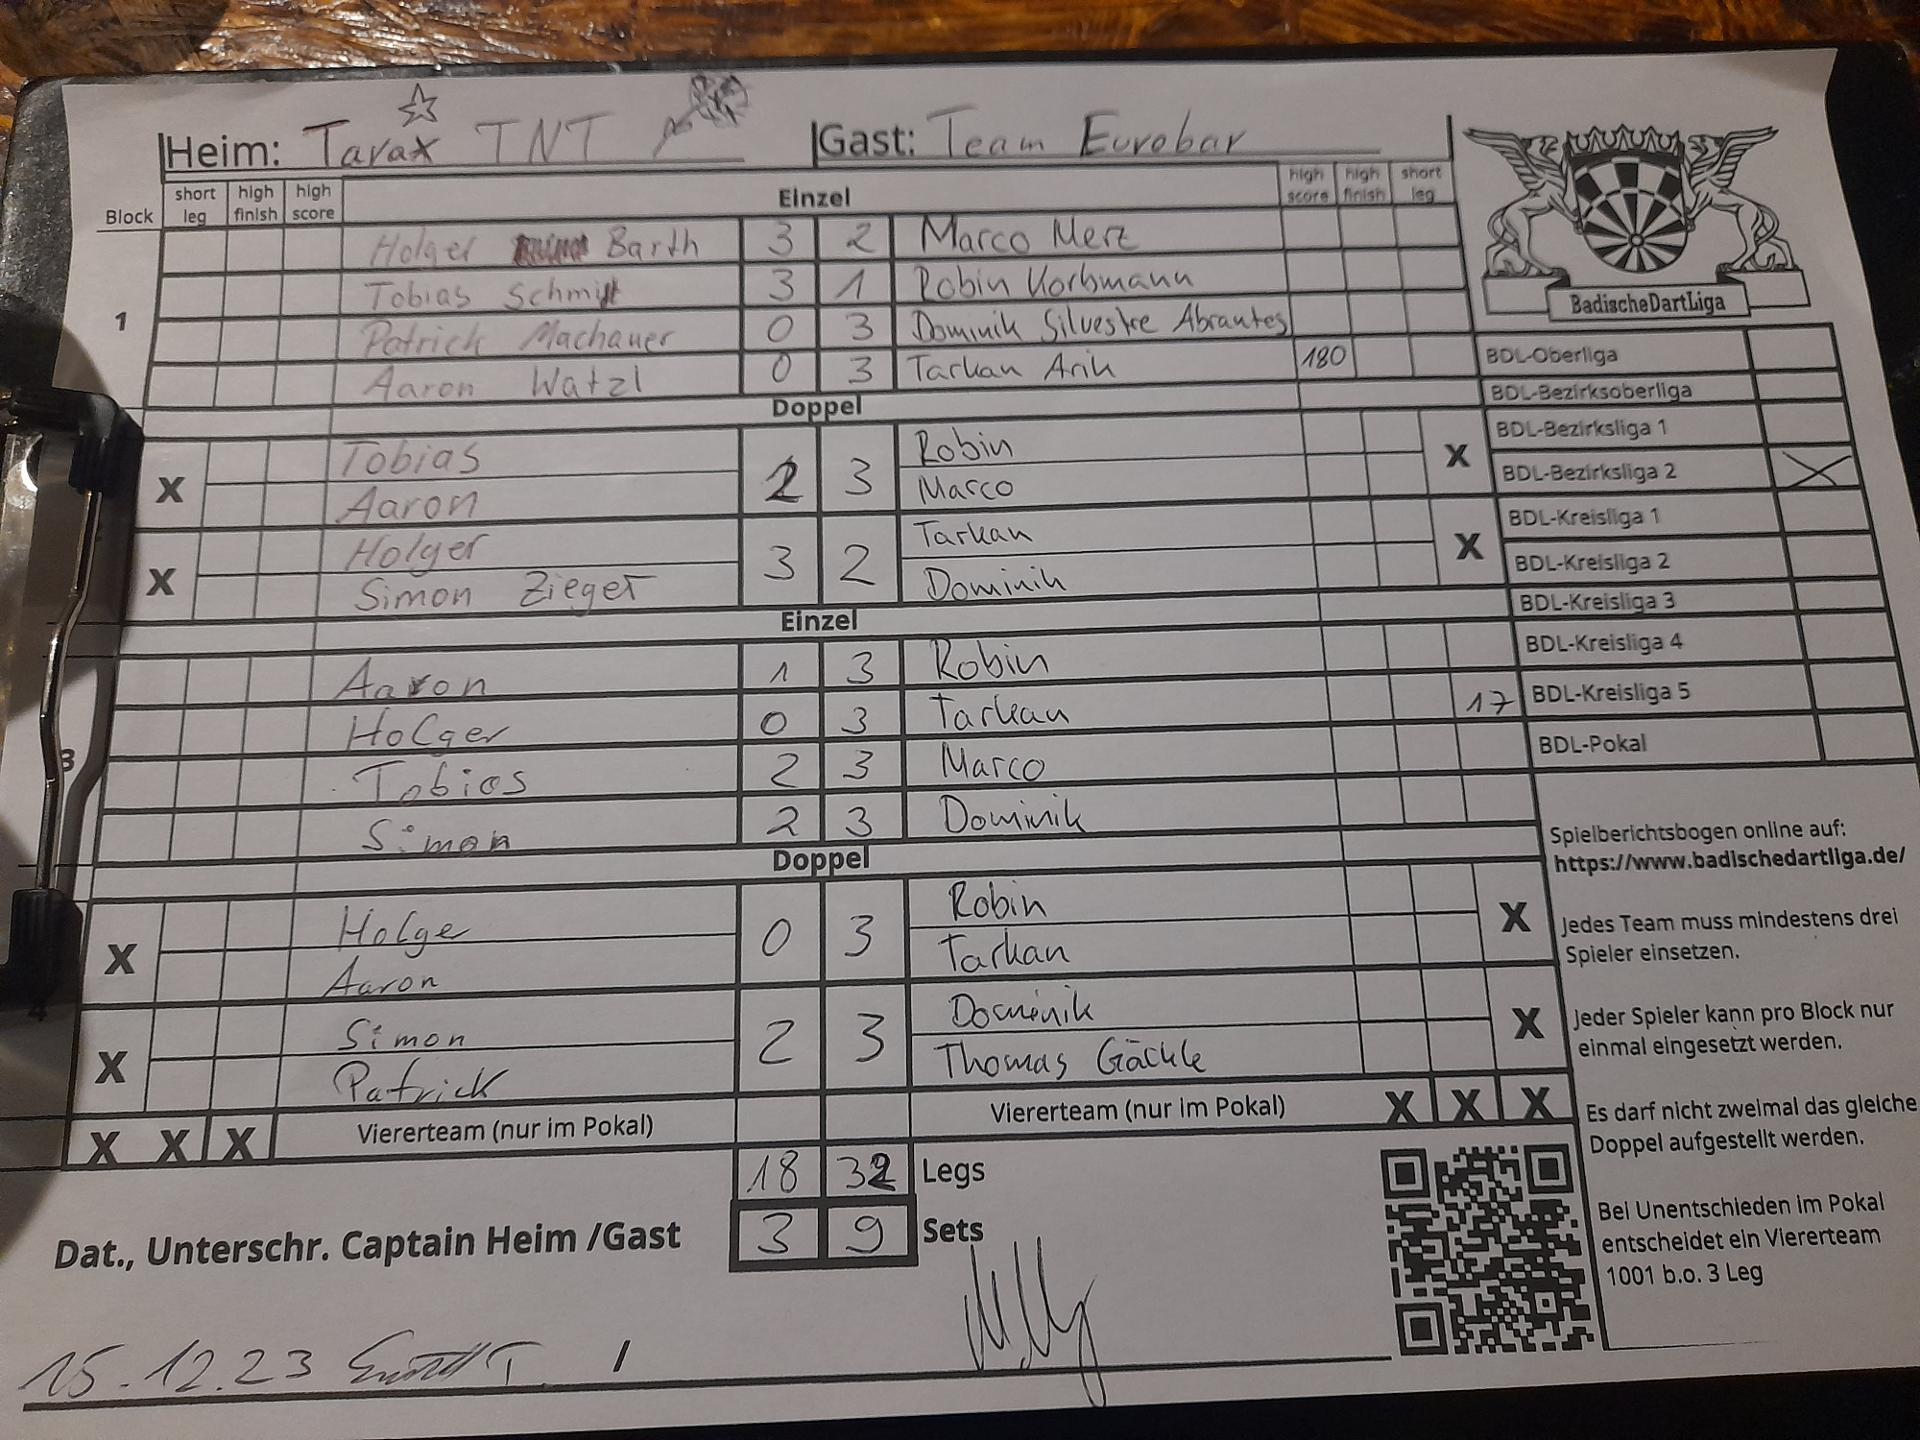 Heim: Tarax TNT Gast: Team Eurobar
Block short leg high finish high score Einzel high score high finish short leg
Holger Barth 3 2 Marco Merz
Tobias Schmitt 3 1 Robin Korbmann
1 Patrick Machauer 0 3 Dominik Silvestre Abrantes
Aaron Watzl 0 3 Tarkan Arik 180
Doppel
X Tobias 2 3 Robin X
Aaron Marco
X Holger 3 2 Tarkan X
Simon Zieger Dominik
Einzel
Aaron 1 3 Robin
Holger 0 3 Tarkan 17
3 Tobias 2 3 Marco
Simon 2 3 Dominik
Doppel
X Holger 0 3 Robin X
Aaron Tarkan
4
X Simon 2 3 Dominik X
Patrick Thomas Gäckle
X X X Viererteam (nur im Pokal) Viererteam (nur im Pokal) X X X
18 32 Legs
3 9 Sets
Dat., Unterschr. Captain Heim /Gast
15.12.23 /
BadischeDartLiga
BDL-Oberliga
BDL-Bezirksoberliga
BDL-Bezirksliga 1
BDL-Bezirksliga 2 X
BDL-Kreisliga 1
BDL-Kreisliga 2
BDL-Kreisliga 3
BDL-Kreisliga 4
BDL-Kreisliga 5
BDL-Pokal
Spielberichtsbogen online auf:
https://www.badischedartliga.de/
Jedes Team muss mindestens drei
Spieler einsetzen.
Jeder Spieler kann pro Block nur
einmal eingesetzt werden.
Es darf nicht zweimal das gleiche
Doppel aufgestellt werden.
Bei Unentschieden im Pokal
entscheidet ein Viererteam
1001 b.o. 3 Leg